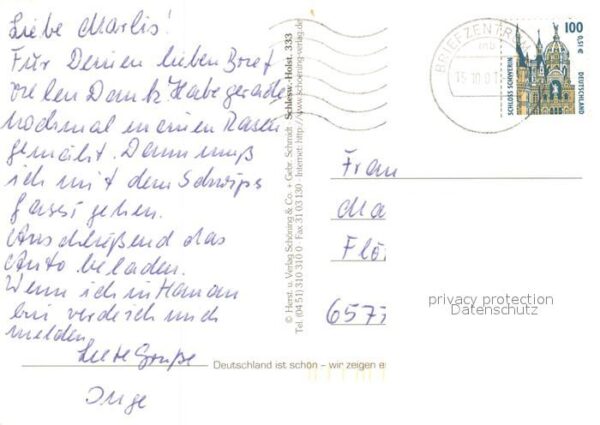 Liebe Marlis!
Für Deinen lieben Brief
vielen Dank. Habe gerade
nochmal meinen Rasen
gemäht. Dann muß
ich mit dem Schwips
Gassi gehen.
Anschließend das
Auto beladen.
Wenn ich in Hanau
bin werde ich mich
melden.
Liebe Grüße
Inge
© Herst. u. Verlag Schöning & Co. + Gebr. Schmidt
Schlesw.-Holst. 333
Tel. (04 51) 310 310 0 · Fax 31 03 130 · Internet: http://www.schoening-verlag.de
BRIEFZENTRUM
100
0,51€
SCHLOSS SCHWERIN
DEUTSCHLAND
Frau
Ma
Flö
6577
privacy protection
Datenschutz
Deutschland ist schön – wir zeigen e